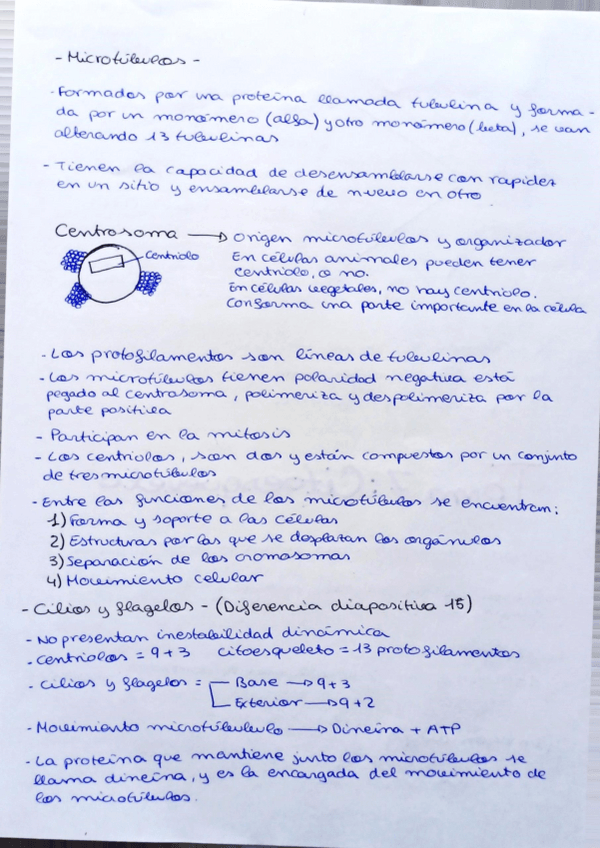 - Microtúbulos -
- Formados por una proteína llamada tubulina y forma-
da por un monómero (alfa) y otro monómero (beta), se van
alterando 13 tubulinas
- Tienen la capacidad de desensamblarse con rapidez
en un sitio y ensamblarse de nuevo en otro.
Centrosoma → Origen microtúbulos y organizador
Centriolo
En células animales pueden tener
centriolo, o no.
En células vegetales, no hay centriolo.
Conforma una parte importante en la célula
- Los protofilamentos son líneas de tubulinas
- Los microtúbulos tienen polaridad negativa está
pegado al centrosoma, polimeriza y despolimeriza por la
parte positiva
- Participan en la mitosis
- Los centriolos, son dos y están compuestos por un conjunto
de tres microtúbulos
- Entre las funciones de los microtúbulos se encuentran:
1) Forma y soporte a las células
2) Estructuras por las que se desplazan los orgánulos
3) Separación de los cromosomas
4) Movimiento celular
- Cilios y flagelos - (Diferencia diapositiva 15)
- No presentan inestabilidad dinámica
- centriolos = 9+3 citoesqueleto = 13 protofilamentos
- Cilios y flagelos = Base → 9+3
Exterior → 9+2
- Movimiento microtúbululo → Dineína + ATP
- La proteína que mantiene junto los microtúbulos se
llama dineína, y es la encargada del movimiento de
los microtúbulos.